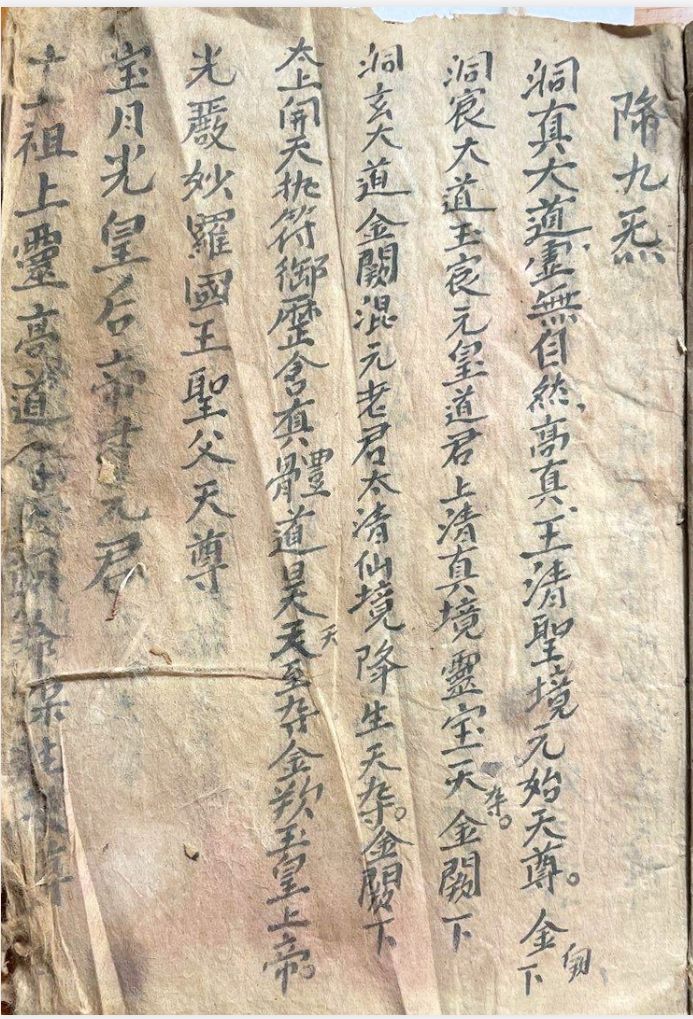 降九炁
洞真大道虛無自然高真玉清聖境元始天尊。金闕下
洞宸大道玉宸元皇道君上清真境靈宝天尊。金闕下
洞玄大道金闕混元老君太清仙境降生天尊。金闕下
太上開天执符御歷含真體道昊天至尊金厥玉皇上帝。
光嚴妙羅國王聖父天尊
宝月光皇后帝母元君
十一祖上靈高道